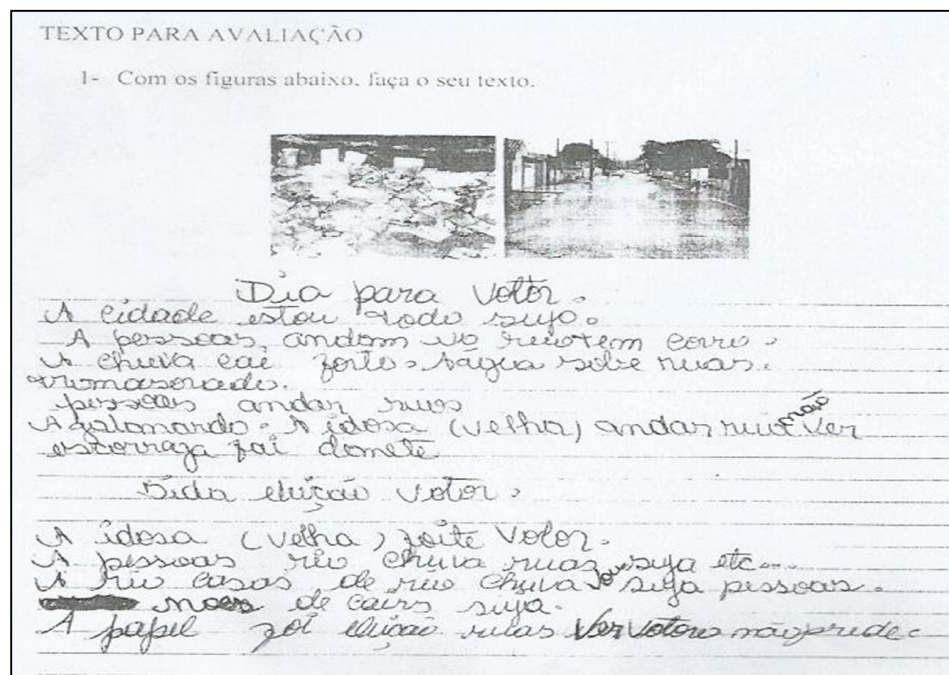 TEXTO PARA AVALIAÇÃO
1- Com os figuras abaixo, faça o seu texto.
Dia para Votor.
A cidade estou todo sujo.
A pessoas, andom tem corro.
A chuva cai forte. A água sobe ruas.

pessoas andar ruas
A idosa (velha) andar rua não ver
escorraga fai
eleição votor.
A idosa (velha) foite Votor.
A pessoas riu chuva ruas suja etc...
A riu casas de riu chuva suja pessoas.
de cairs suja.
A papel foi eleição ruas Ver Votore não prede.